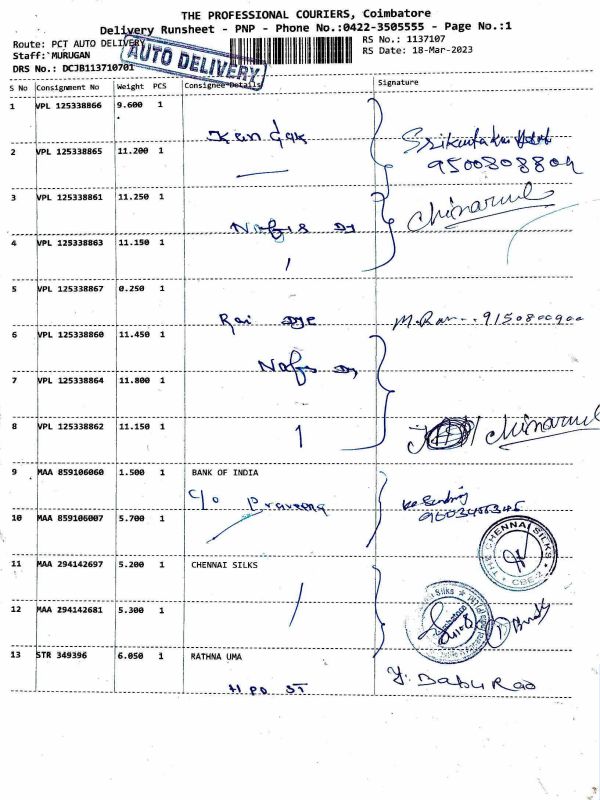 THE PROFESSIONAL COURIERS, Coimbatore
Delivery Runsheet - PNP - Phone No.:0422-3505555 - Page No.:1
Route: PCT AUTO DELIVERY
RS No.: 1137107
Staff: MURUGAN
RS Date: 18-Mar-2023
DRS No.: DCJB113710701
AUTO DELIVERY
S No Consignment No Weight PCS Consignee Details Signature
1 VPL 125338866 9.600 1
2 VPL 125338865 11.200 1
9500808804
3 VPL 125338861 11.250 1
4 VPL 125338863 11.150 1
5 VPL 125338867 0.250 1
Rai
6 VPL 125338860 11.450 1
7 VPL 125338864 11.800 1
8 VPL 125338862 11.150 1
9 MAA 859106060 1.500 1 BANK OF INDIA
C/o Praveena
10 MAA 859106007 5.700 1
THE CHENNAI SILKS
CBE-2
11 MAA 294142697 5.200 1 CHENNAI SILKS
12 MAA 294142681 5.300 1
13 STR 349396 6.050 1 RATHNA UMA
H.PO ST Y. Babu Rao